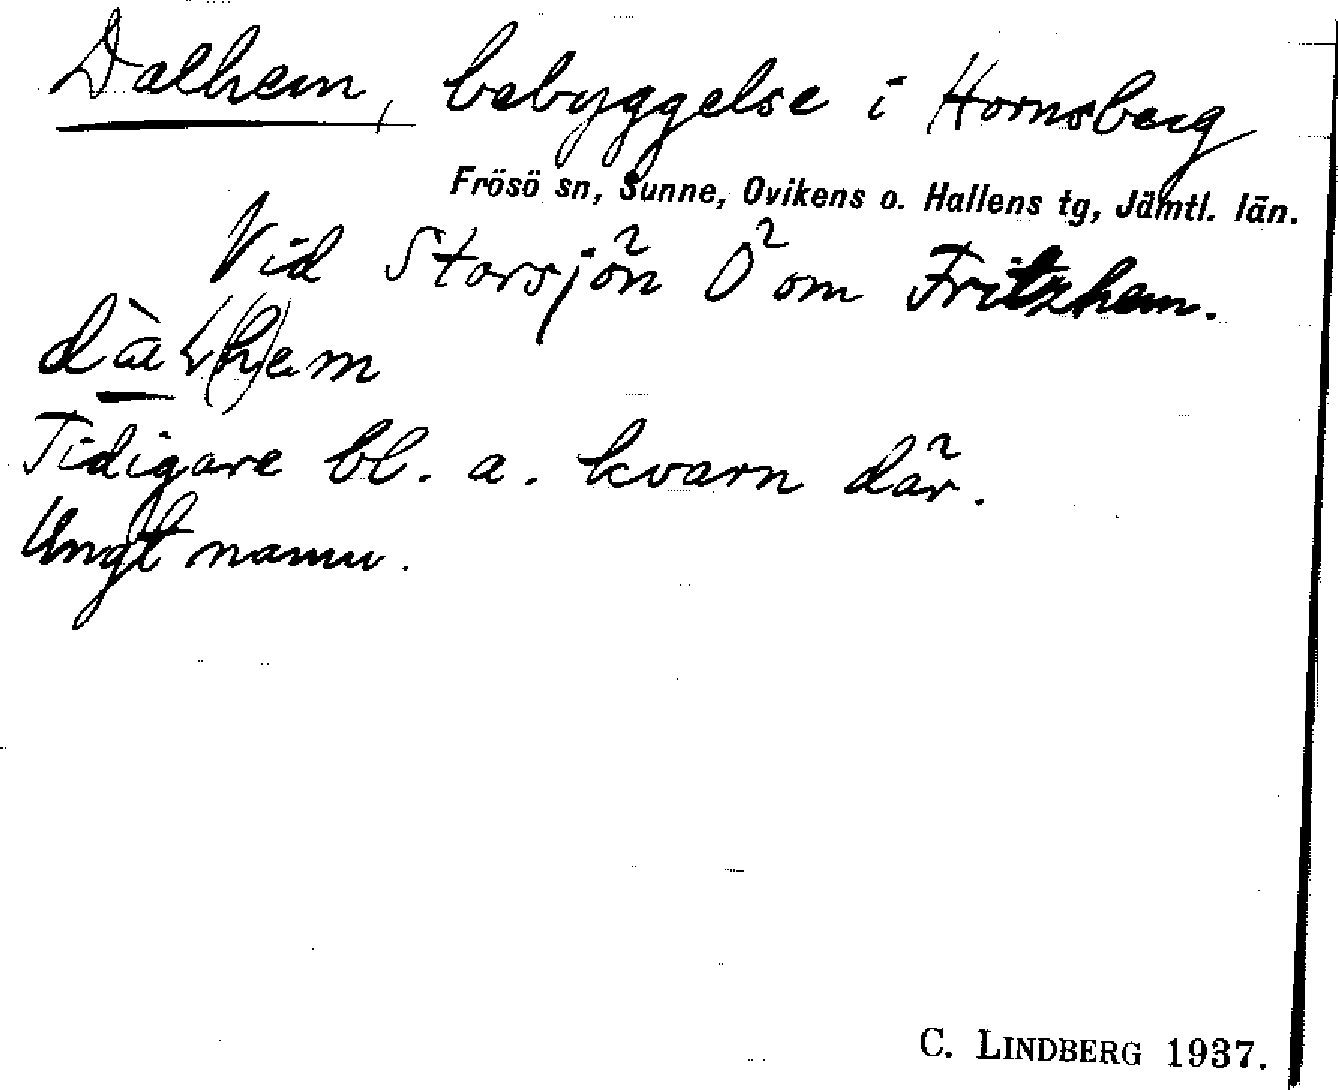 Dalhem, bebyggelse i Hornsberg
Frösö sn, Sunne, Ovikens o. Hallens tg, Jämtl. län.
Vid Storsjön Ö om Fritzhem.
dàL(h)em
Tidigare bl. a. kvarn där.
Ungt namn.
C. LINDBERG 1937.